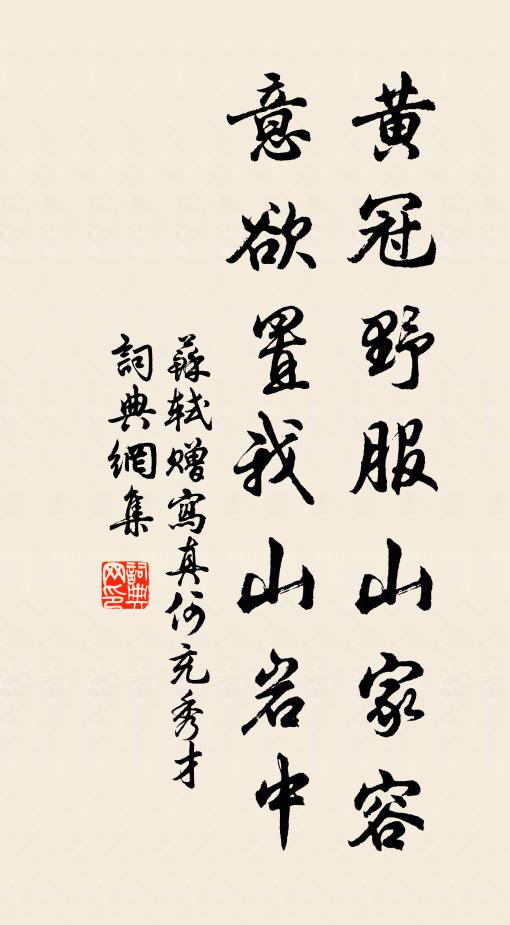 黃冠野服山家容
意欲置我山岩中
蘇軾贈寫真何充秀才
詞典網集
詞典
网印